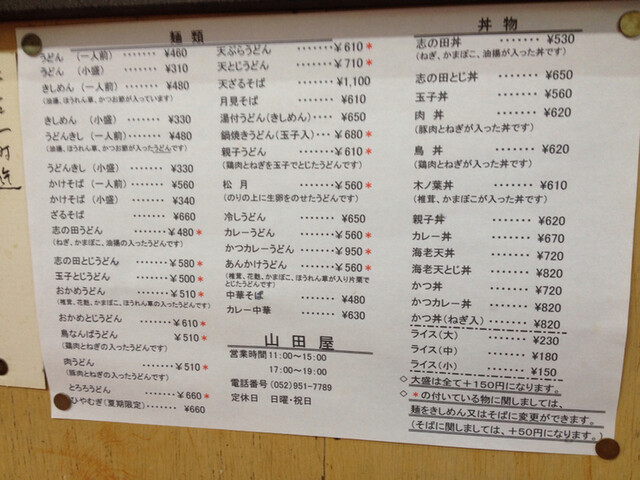 麺 類
うどん (一人前) ‥‥‥ ¥460
うどん (小盛) ‥‥‥ ¥310
きしめん (一人前) ‥‥‥ ¥480
(油揚、ほうれん草、かつお節が入っています)
きしめん (小盛) ‥‥‥ ¥330
うどんきし (一人前) ‥‥‥ ¥480
(油揚、ほうれん草、かつお節が入ったうどんです)
うどんきし (小盛) ‥‥‥ ¥330
かけそば (一人前) ‥‥‥ ¥560
かけそば (小盛) ‥‥‥ ¥340
ざるそば ‥‥‥ ¥660
志の田うどん ‥‥‥ ¥480*
(ねぎ、かまぼこ、油揚の入ったうどんです)
志の田とじうどん ‥‥‥ ¥580*
玉子とじうどん ‥‥‥ ¥500*
おかめうどん ‥‥‥ ¥510*
(椎茸、花麩、かまぼこ、ほうれん草の入ったうどんです)
おかめとじうどん ‥‥‥ ¥610*
鳥なんばうどん ‥‥‥ ¥510*
(鶏肉とねぎの入ったうどんです)
肉うどん ‥‥‥ ¥510*
(豚肉とねぎの入ったうどんです)
とろろうどん ‥‥‥ ¥660*
ひやむぎ(夏期限定) ‥‥‥ ¥660
天ぷらうどん ‥‥‥ ¥610*
天とじうどん ‥‥‥ ¥710*
天ざるそば ‥‥‥ ¥1,100
月見そば ‥‥‥ ¥610
湯付うどん(きしめん) ‥‥ ¥650
鍋焼きうどん(玉子入) ‥‥ ¥680*
親子うどん ‥‥‥ ¥610*
(鶏肉とねぎを玉子でとじたうどんです)
松 月 ‥‥‥ ¥560*
(のりの上に生卵をのせたうどんです)
冷しうどん ‥‥‥ ¥650
カレーうどん ‥‥‥ ¥560*
かつカレーうどん ‥‥‥ ¥950*
あんかけうどん ‥‥‥ ¥560*
(椎茸、花麩、かまぼこ、ほうれん草が入り片栗で
とじたうどんです)
中華そば ‥‥‥ ¥480
カレー中華 ‥‥‥ ¥630
山 田 屋
営業時間 11:00~15:00
17:00~19:00
電話番号 (052)951-7789
定休日 日曜・祝日
丼 物
志の田丼 ‥‥‥ ¥530
(ねぎ、かまぼこ、油揚が入った丼です)
志の田とじ丼 ‥‥‥ ¥650
玉子丼 ‥‥‥ ¥560
肉 丼 ‥‥‥ ¥620
(豚肉とねぎが入った丼です)
鳥 丼 ‥‥‥ ¥620
(鶏肉とねぎが入った丼です)
木ノ葉丼 ‥‥‥ ¥610
(椎茸、かまぼこが入った丼です)
親子丼 ‥‥‥ ¥620
カレー丼 ‥‥‥ ¥670
海老天丼 ‥‥‥ ¥720
海老天とじ丼 ‥‥‥ ¥820
かつ丼 ‥‥‥ ¥720
かつカレー丼 ‥‥‥ ¥820
かつ丼(ねぎ入) ‥‥‥ ¥820
ライス(大) ‥‥‥ ¥230
ライス(中) ‥‥‥ ¥180
ライス(小) ‥‥‥ ¥150
◇ 大盛は全て+150円になります。
◇ *の付いている物に関しましては、
麺をきしめん又はそばに変更ができます。
(そばに関しましては、+50円になります。)